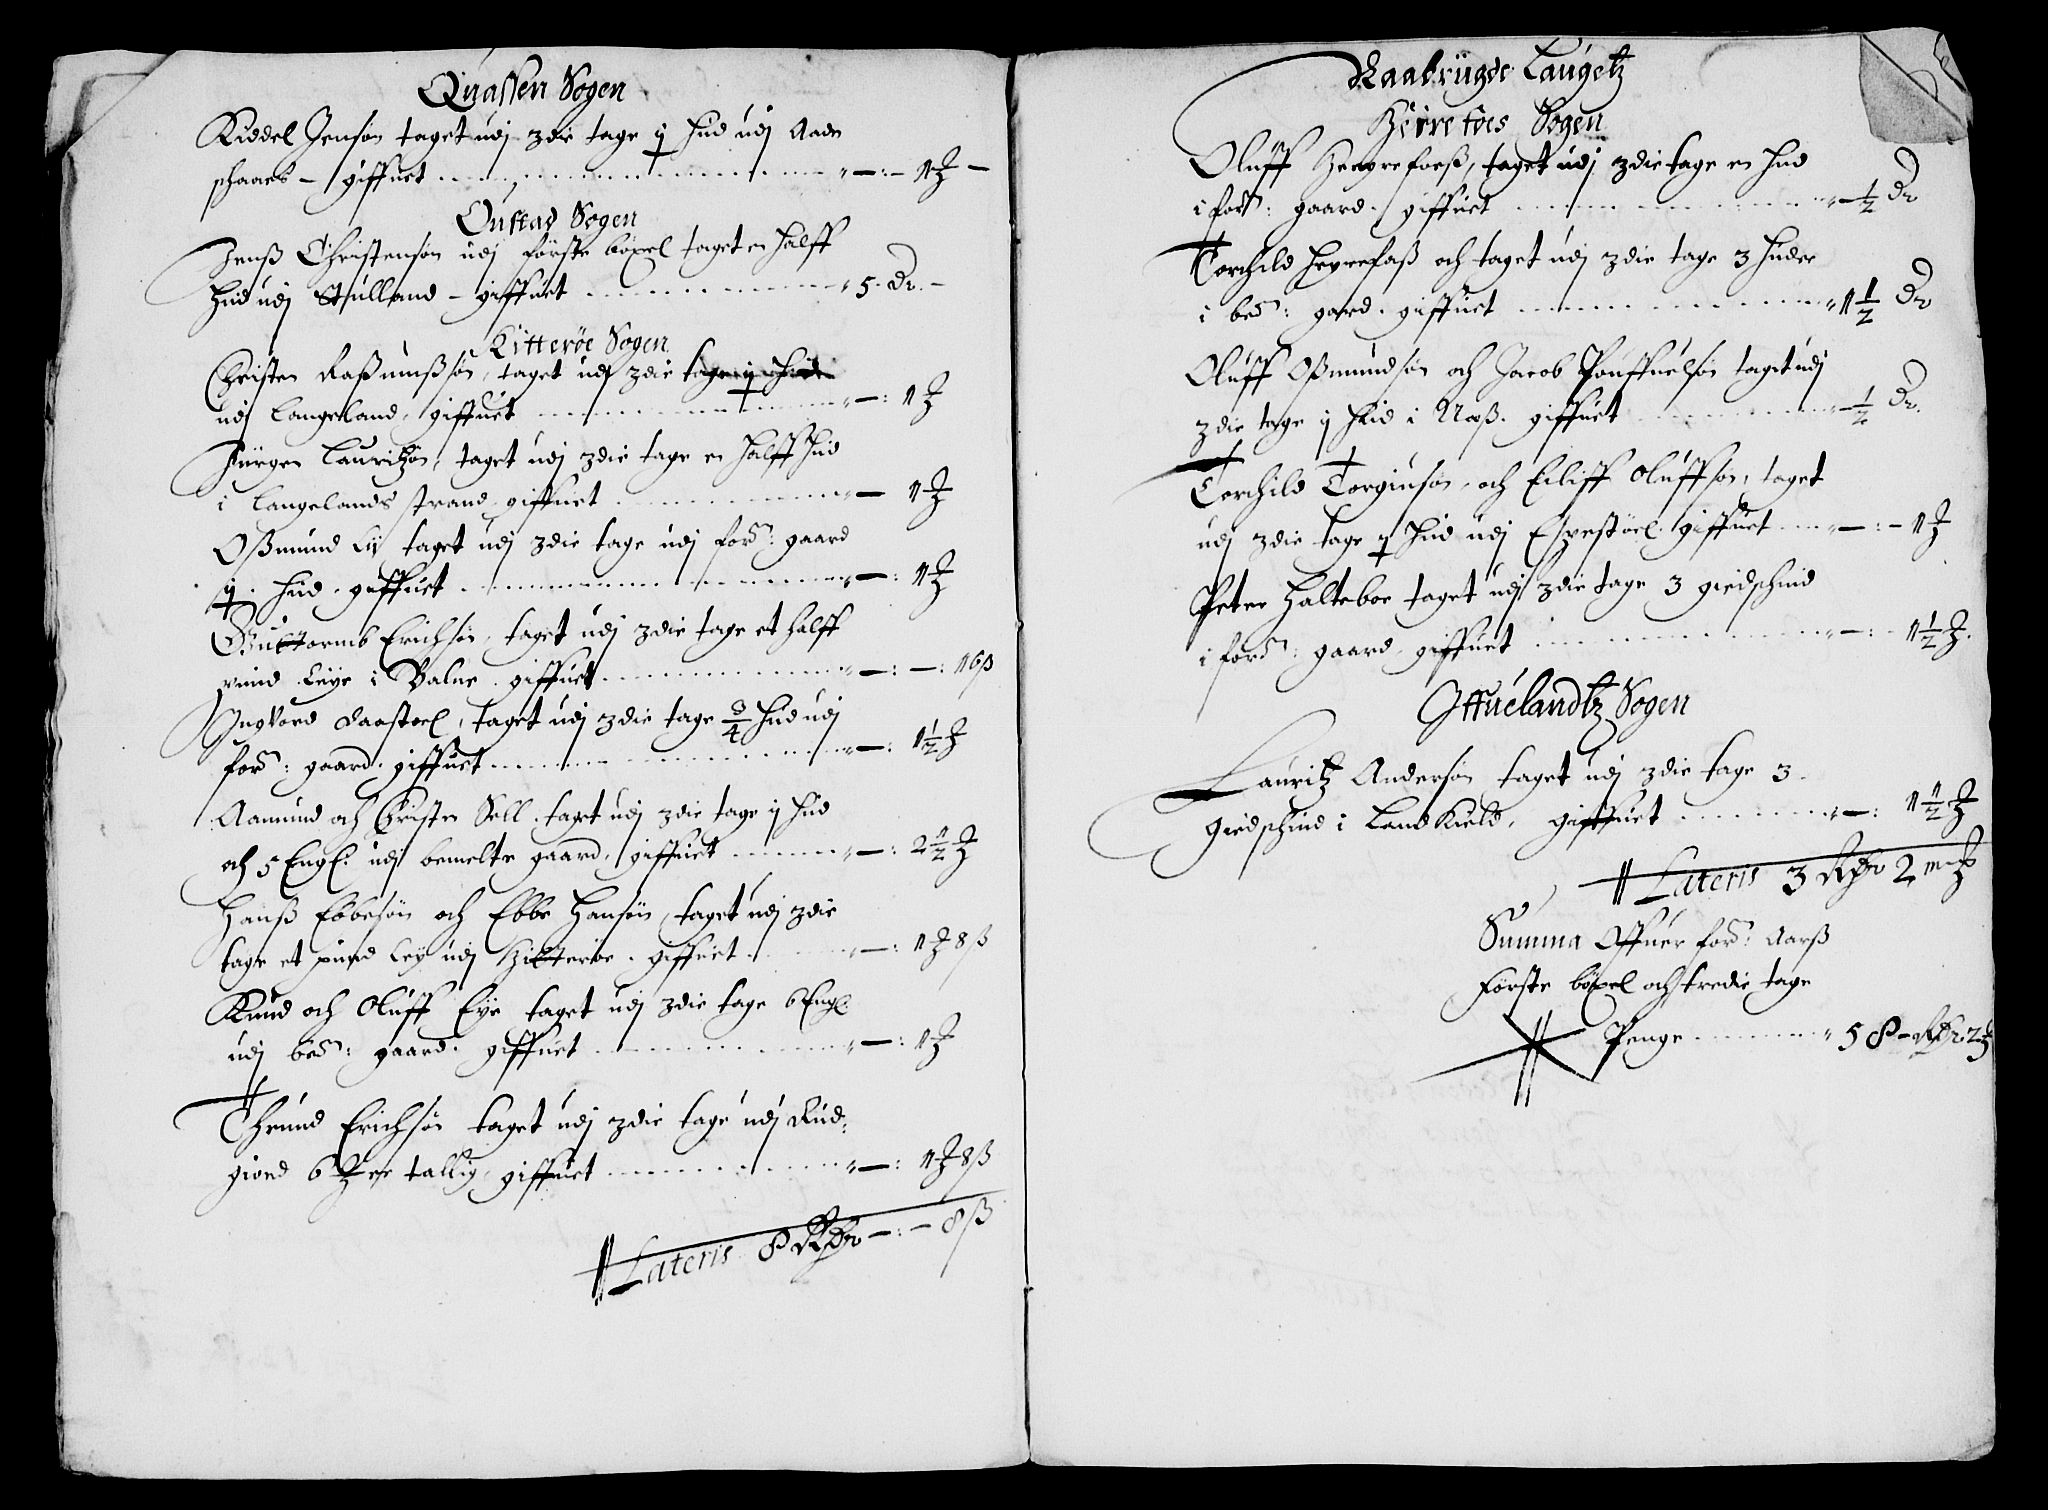 Quassen Sogen
Kiddel Jensøn taget udj 3die tage ÿ hud udj Aade
schaaes - giffuet ................ " — : — 1 ℥ —
Oustad Sogen
Jenß Christensøn udj første böxel taget en halff
hud udj Stulland - giffuet ............ " 5 Dr. —
Kitterøe Sogen
Christen Raßmußsøn, taget udj 3die tage ÿ hud
udj Langeland, giffuet ............ " — : 1 ℥
Jürgen Lauritzøn, taget udj 3die tage en halff hud
i Langelands strand giffuet ............ " — 1 ℥
Oßmund Lij taget udj 3die tage udj ford: gaard
ÿ. hud. giffuet ............ " — : 1 ℥
Guttormb Erichsøn, taget udj 3die tage et halff
pund Leye i Value. giffuet ............ " — : — : 16 ß
Ingvord Aaastoel, taget udj 3die tage 3/4 hud udj
ford: gaard. giffuet ............ " — : 1 1/2 ℥
Aamund och Christen Sell. taget udj 3die tage ÿ hud
och 5 Engl. udj bemelte gaard, giffuet ........ " — : 2 1/2 ℥
Hanß Ebbesøn och Ebbe Hansøn, taget udj 3die
tage et pund Leÿ udj Hitterøe. giffuet ........ " — : 1 ℥ 8 ß
Knud och Oluff Eÿe taget udj 3die tage 6 Engl.
udj bed: gaard. giffuet ............ " — : 1 ℥
Thrund Erichsøn taget udj 3die tage udj Rud-
giord 6 ℥er tallig, giffuet ............ " — : 1 ℥ 8 ß
Lateris 8 RDr — : — 8 ß
Raabrügde Laugetz
Herrefoes Sogen
Oluff Herrefoeß, taget udj 3die tage en hud
i ford: gaard. giffuet ............ " — 1/2 Dr
Torchild Herrefaß och taget udj 3die tage 3 huder
i bed: gard. giffuet ............ " 1 1/2 Dr
Oluff Oßmundsøn och Jacob Pouffuelsøn taget udj
3die tage ÿ hud i Næß. giffuet ............ " — 1/2 Dr.
Torchild Torgiusøn, och Eiliff Oluffsøn, taget
udj 3die tage ÿ hud udj Espestøel. giffuet .... " — : — 1 ℥
Peter Halteboe taget udj 3die tage 3 giedschind
i ford: gaard. giffuet ............ " — : — 1 1/2 ℥.
Iffuelandtz Sogen
Lauritz Andersøn taget udj 3die tage 3
Giedschind i Landkield, giffuet ........ " — : 1 1/2 ℥
Lateris 3 RDr 2 m℥
Summa Offuer ford: Aarß
Første böxel och tredie tage
Penge ............ " 58 — RDr. 2 ℥